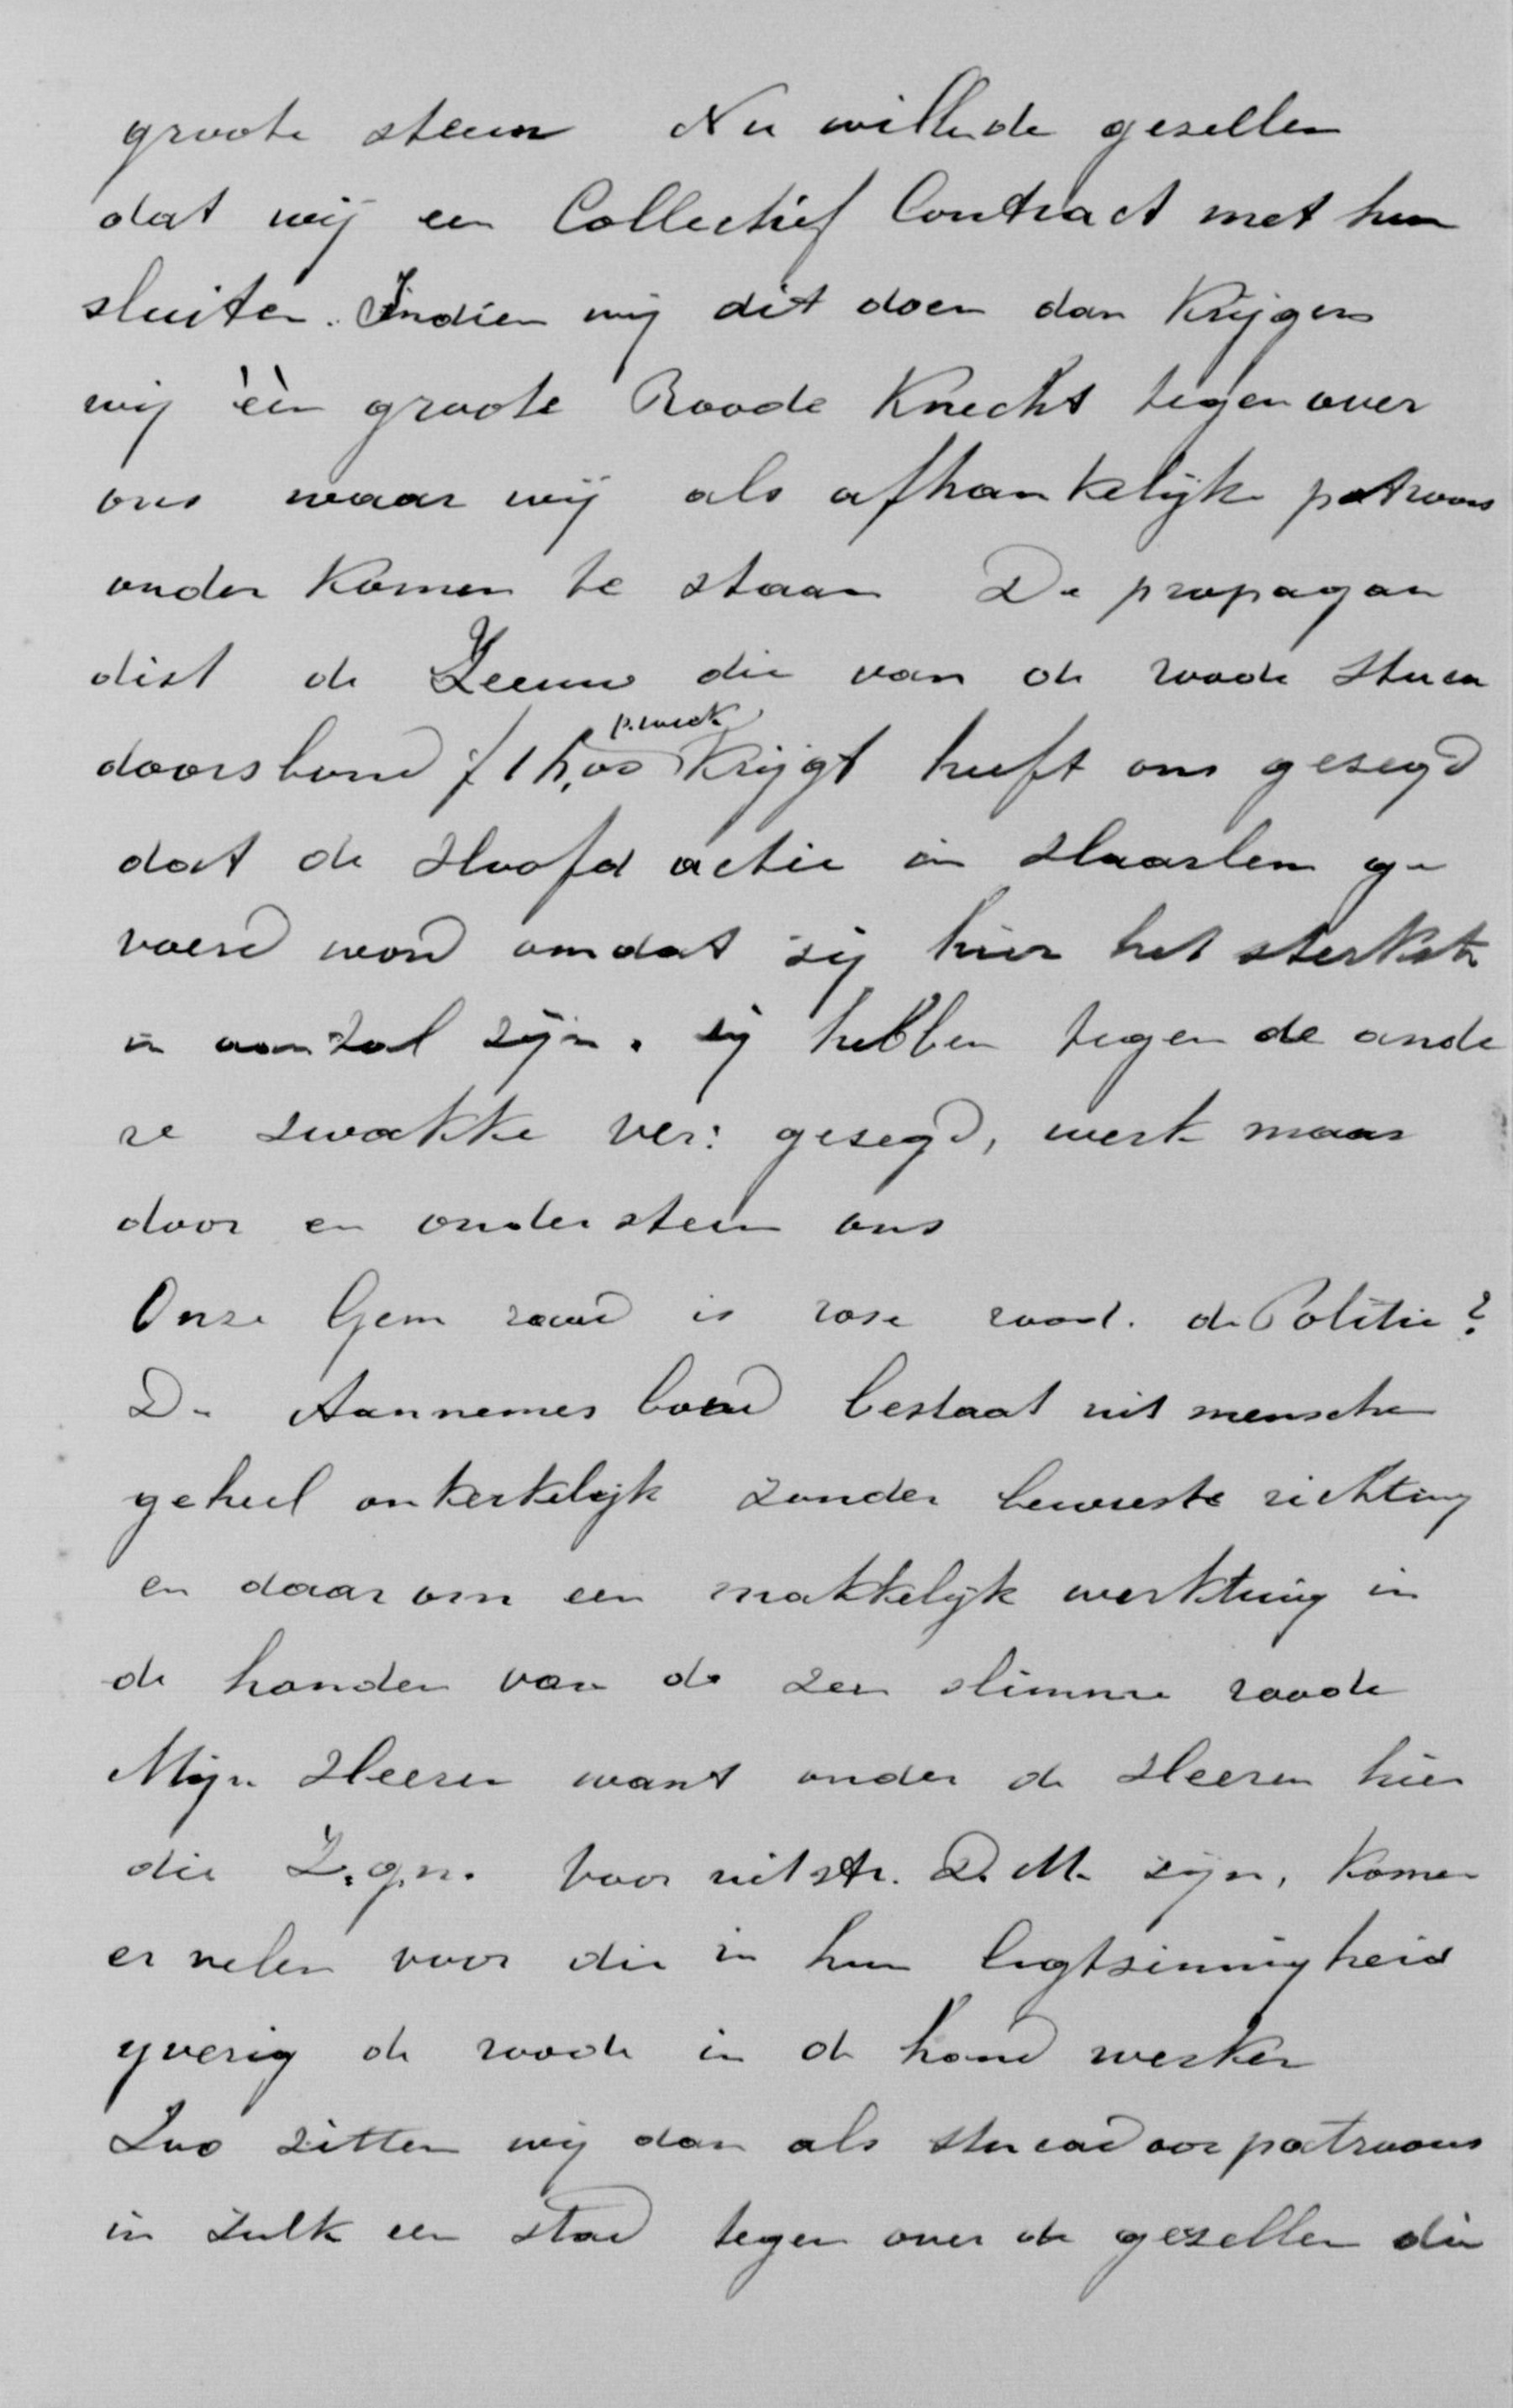 groote steun Nu willen de gesellen
dat wij een Collectief Contract met hun
sluiten. Indien wij dit doen dan Krijgen
wij één groote Roode Knecht tegen over
ons waar wij als afhankelijke patroons
onder Komen te staan De propagan
dist de Zeeuw die van de roode stuca
doorsbond f 15,00 p. week Krijgt heeft ons gesegd
dat de Hoofd actie in Haarlem ge
voerd word omdat sij hier het sterkste
in aantal zijn. sij hebben tegen de ande
re zwakke ver: gesegd, werk maar
door en ondersteun ons
Onze Gem raad is rose rood. de Politie?
De Aannemers bond bestaat uit menschen
geheel onkerkelijk zonder bewuste richting
en daarom een makkelijk werktuig in
de handen van de zeer slimme roode
Mijne Heeren want onder de Heeren hier
die Z.g.n. voor uitstr. D. M. zijn, komen
er velen voor die in hun ligtsinnigheid
yverig de roode in de hand werken
Zoo zitten wij dan als stucadoor patroons
in zulk een stad tegen over de gezellen die